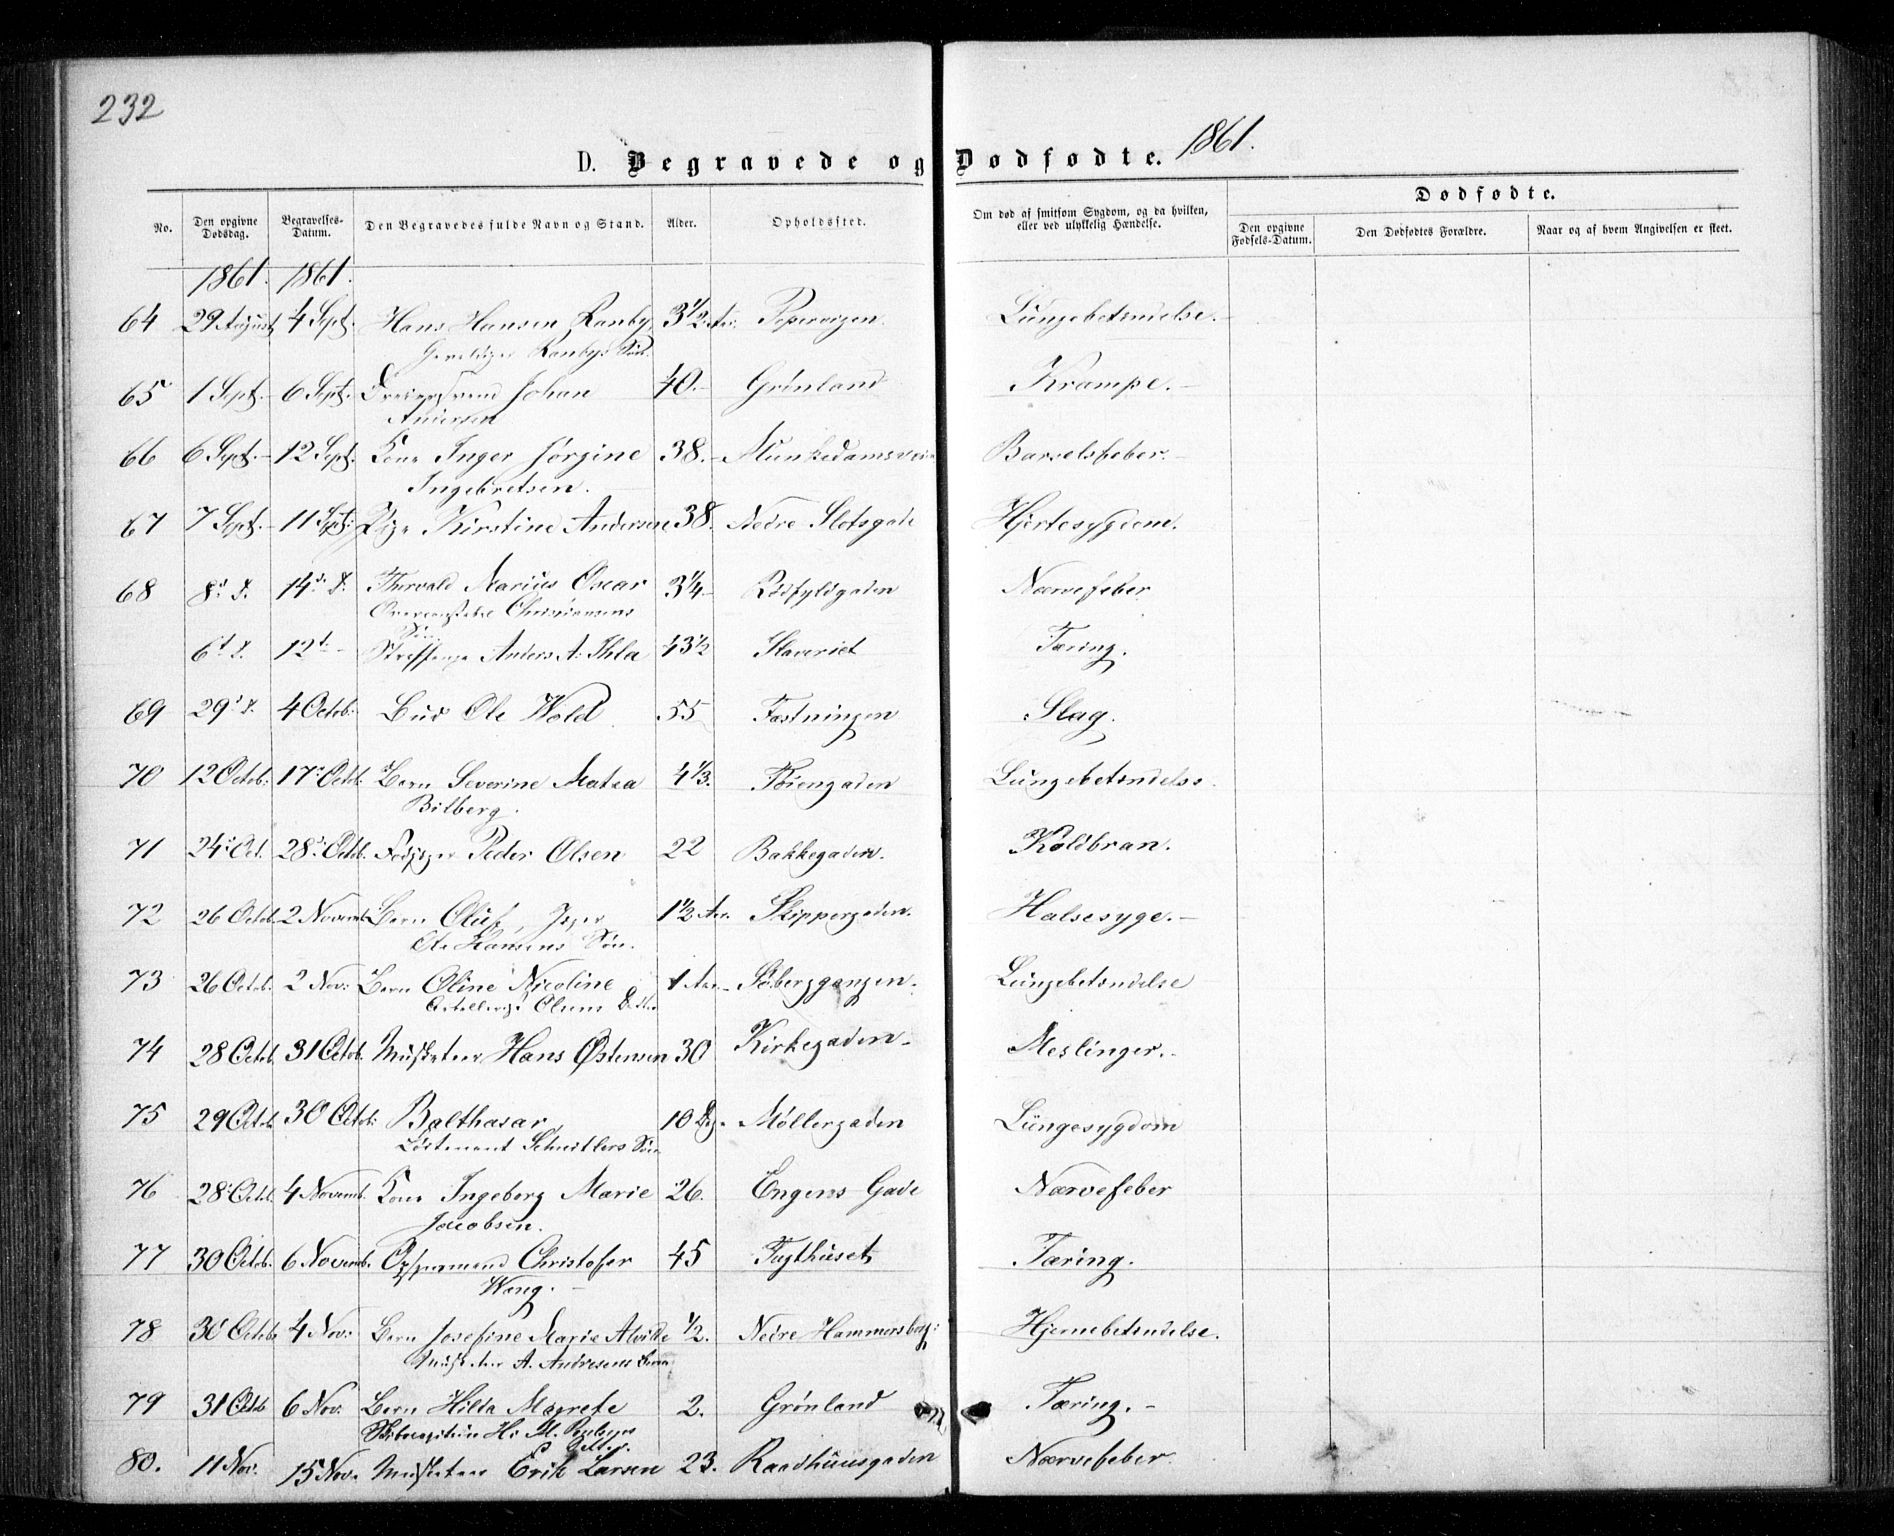 232
D. Begravede og Dødfødte. 1861.
Dødfødte.
No. Den opgivne Dødsdag. Begravelses-Datum. Den Begravedes fulde Navn og Stand. Alder. Opholdssted. Om død af smitsom Sygdom, og da hvilken, eller ved ulykkelig Hændelse. Den opgivne Fødsels-Datum. Den Dødfødtes Forældre. Naar og af hvem Angivelsen er skeet.
1861. 1861.
64 29 August 4 Sept. Hans Hansen Ranby 3 1/2 Aar. Pipervigen Lungebetændelse.
Ranbys Søn.
65 1 Sept. 6 Sept. Johan 40. Grønland Krampe.
Andersen
66 6 Sept. 12 Sept. Kone Inger Jørgine 38. Munkedamsveien Barselsfeber.
Ingebretsen.
67 7 Sept. 11 Sept. Pige Kirstine Andersen 38. Nedre Slotsgade Hjertesygdom.
68 8 S. 14 S. Thorvald Marius Oscar 3 1/4 Rødfyldgaden Nærvefeber
Christiansens
Søn
6 S. 12 Anders A. Ihla 43 1/2 Slaveriet Tæring.
69 29 S. 4 Octob. Bud Ole Wold 55 Fæstningen Slag.
70 12 Octob. 17 Octb. Barn Severine Matea 4 1/3. Føiengaden Lungebetændelse.
Bilberg.
71 24 Oct. 28 Octob. Peder Olsen 22 Bakkegaden. Koldbran.
72 26 Octob. 2 Novemb. Barn Oluf, Jæger 1 1/2 Aar. Skippergaden. Halsesyge.
Ole Hansens Søn.
73 26 Octob. 2 Nov. Barn Oline Nicoline 1 Aar. Søberggangen. Lungebetændelse
Olsens Datter
74 28 Octob. 31 Octob. Musketeer Hans Østensen 30 Kirkegaden Meslinger.
75 29 Octob. 30 Octob. Balthasar 10 Dg. Møllergaden Lungesygdom
Løitenant Schnitlers Søn
76 28 Octb. 4 Novemb. Kone Ingeborg Marie 26. Engens Gade Nærvefeber
Jacobsen.
77 30 Octob. 6 Novemb. Opsynsmand Christofer 45 Tugthuset Tæring.
Wang.
78 30 Octob. 4 Nov. Barn Josefine Marie Alvilde 1/2. Nedre Hammersborg. Hjernebetændelse.
Musketeer A. Andresens Barn
79 31 Octb. 6 Nov. Barn Hilda Magrete 2. Grønland Tæring.
Datter.
80. 11 Nov. 15 Nov. Musketeer Erik Larsen 23. Raadhuusgaden Nærvefeber.